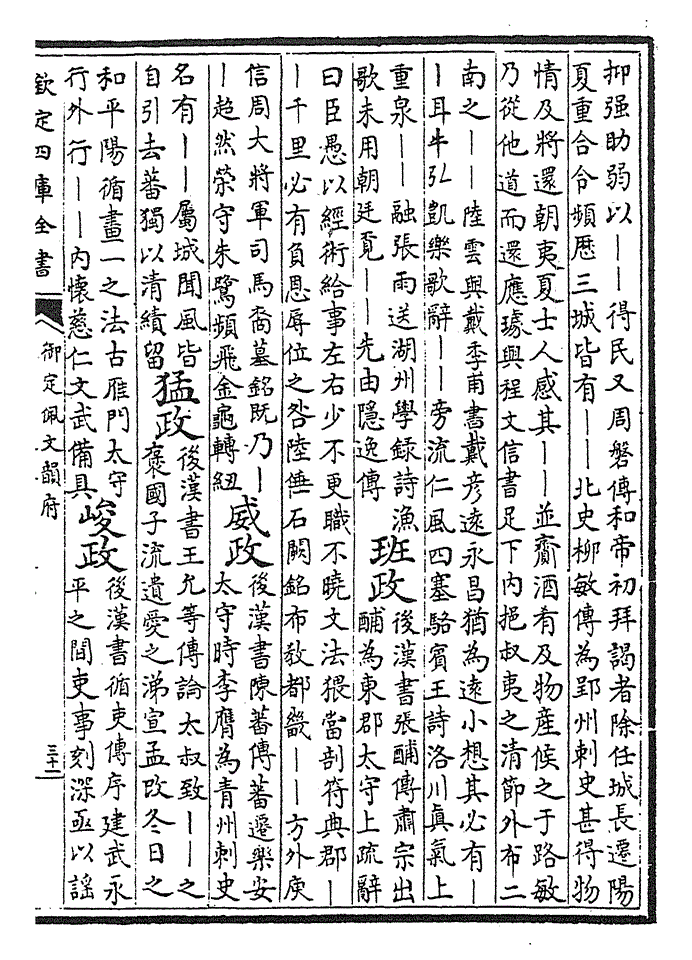 抑强助弱以丨丨得民又周磐傳和帝初拜謁者除任城長遷陽
夏重合令頻厯三城皆有丨丨北史柳敏傳為郢州刺史甚得物
情及將還朝夷夏士人感其丨丨並齎酒肴及物産候之于路敏
乃從他道而還應璩與程文信書足下内挹叔夷之清節外布二
南之丨丨陸雲與戴季甫書戴彦逺永昌猶為逺小想其必有丨
丨耳牛弘凱樂歌辭丨丨旁流仁風四塞駱賓王詩洛川真氣上
重泉丨丨融張雨送湖州學録詩漁
歌未用朝廷覔丨丨先由隱逸傳
班政
後漢書張酺傳肅宗出
酺為東郡太守上疏辭
曰臣愚以經術給事左右少不更職不曉文法猥當剖符典郡丨
丨千里必有負恩辱位之咎陸倕石闕銘布教都畿丨丨方外庾
信周大將軍司馬裔墓銘既乃丨
丨超然榮守朱鷺頻飛金龜轉紐
威政
後漢書陳蕃傳蕃遷樂安
太守時李膺為青州刺史
名有丨丨屬城聞風皆
自引去蕃獨以清績留
猛政
後漢書王允等傳論太叔致丨丨之
襃國子流遺愛之涕宣孟改冬日之
和平陽循畫一之法古雁門太守
行外行丨丨内懷慈仁文武備具
峻政
後漢書循吏傳序建武永
平之間吏事刻深亟以謡
欽定四庫全書
御定佩文韻府
三十二